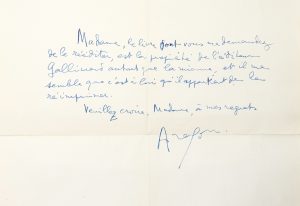 Madame, le livre dont vous me demandez
de le rééditer, est la propriété de l'éditeur
Gallimard autant que la mienne, et il me
semble que c'est à lui qu'il appartient de le
réimprimer.
Veuillez croire, Madame, à mes regrets
Aragon